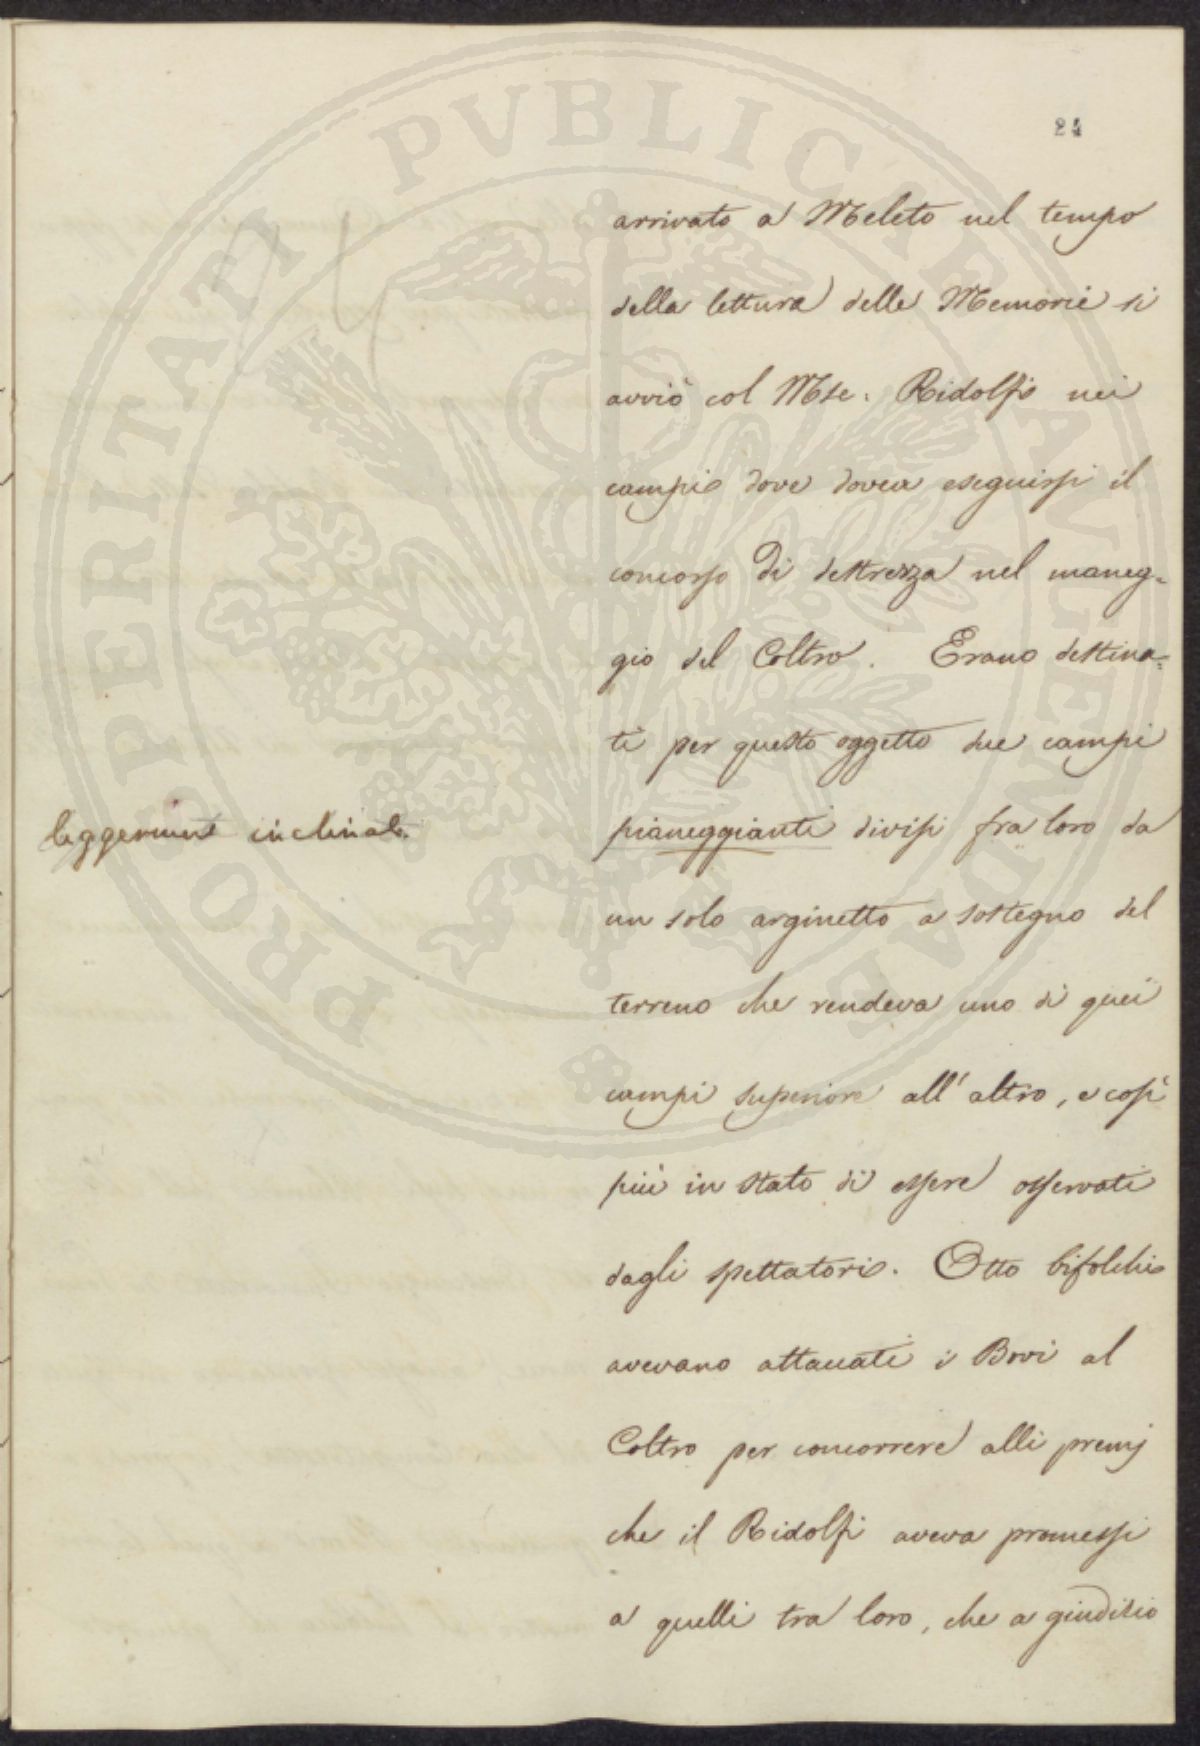 PROSPERITATI PUBLICAE AUGENDAE
24
arrivato a Meleto nel tempo
della lettura delle Memorie si
avviò col Mse. Ridolfi nei
campi dove dovea eseguirsi il
concorso di destrezza nel maneg-
gio del Coltro. Erano destina-
ti per questo oggetto due campi
leggermente inclinati
pianeggianti divisi fra loro da
un solo arginetto a sostegno del
terreno che rendeva uno di quei
campi superiore all'altro, e così
più in stato di essere osservati
dagli spettatori. Otto bifolchi
avevano attaccati i Bovi al
Coltro per concorrere alli premj
che il Ridolfi aveva promessi
a quelli tra loro, che a giudizio